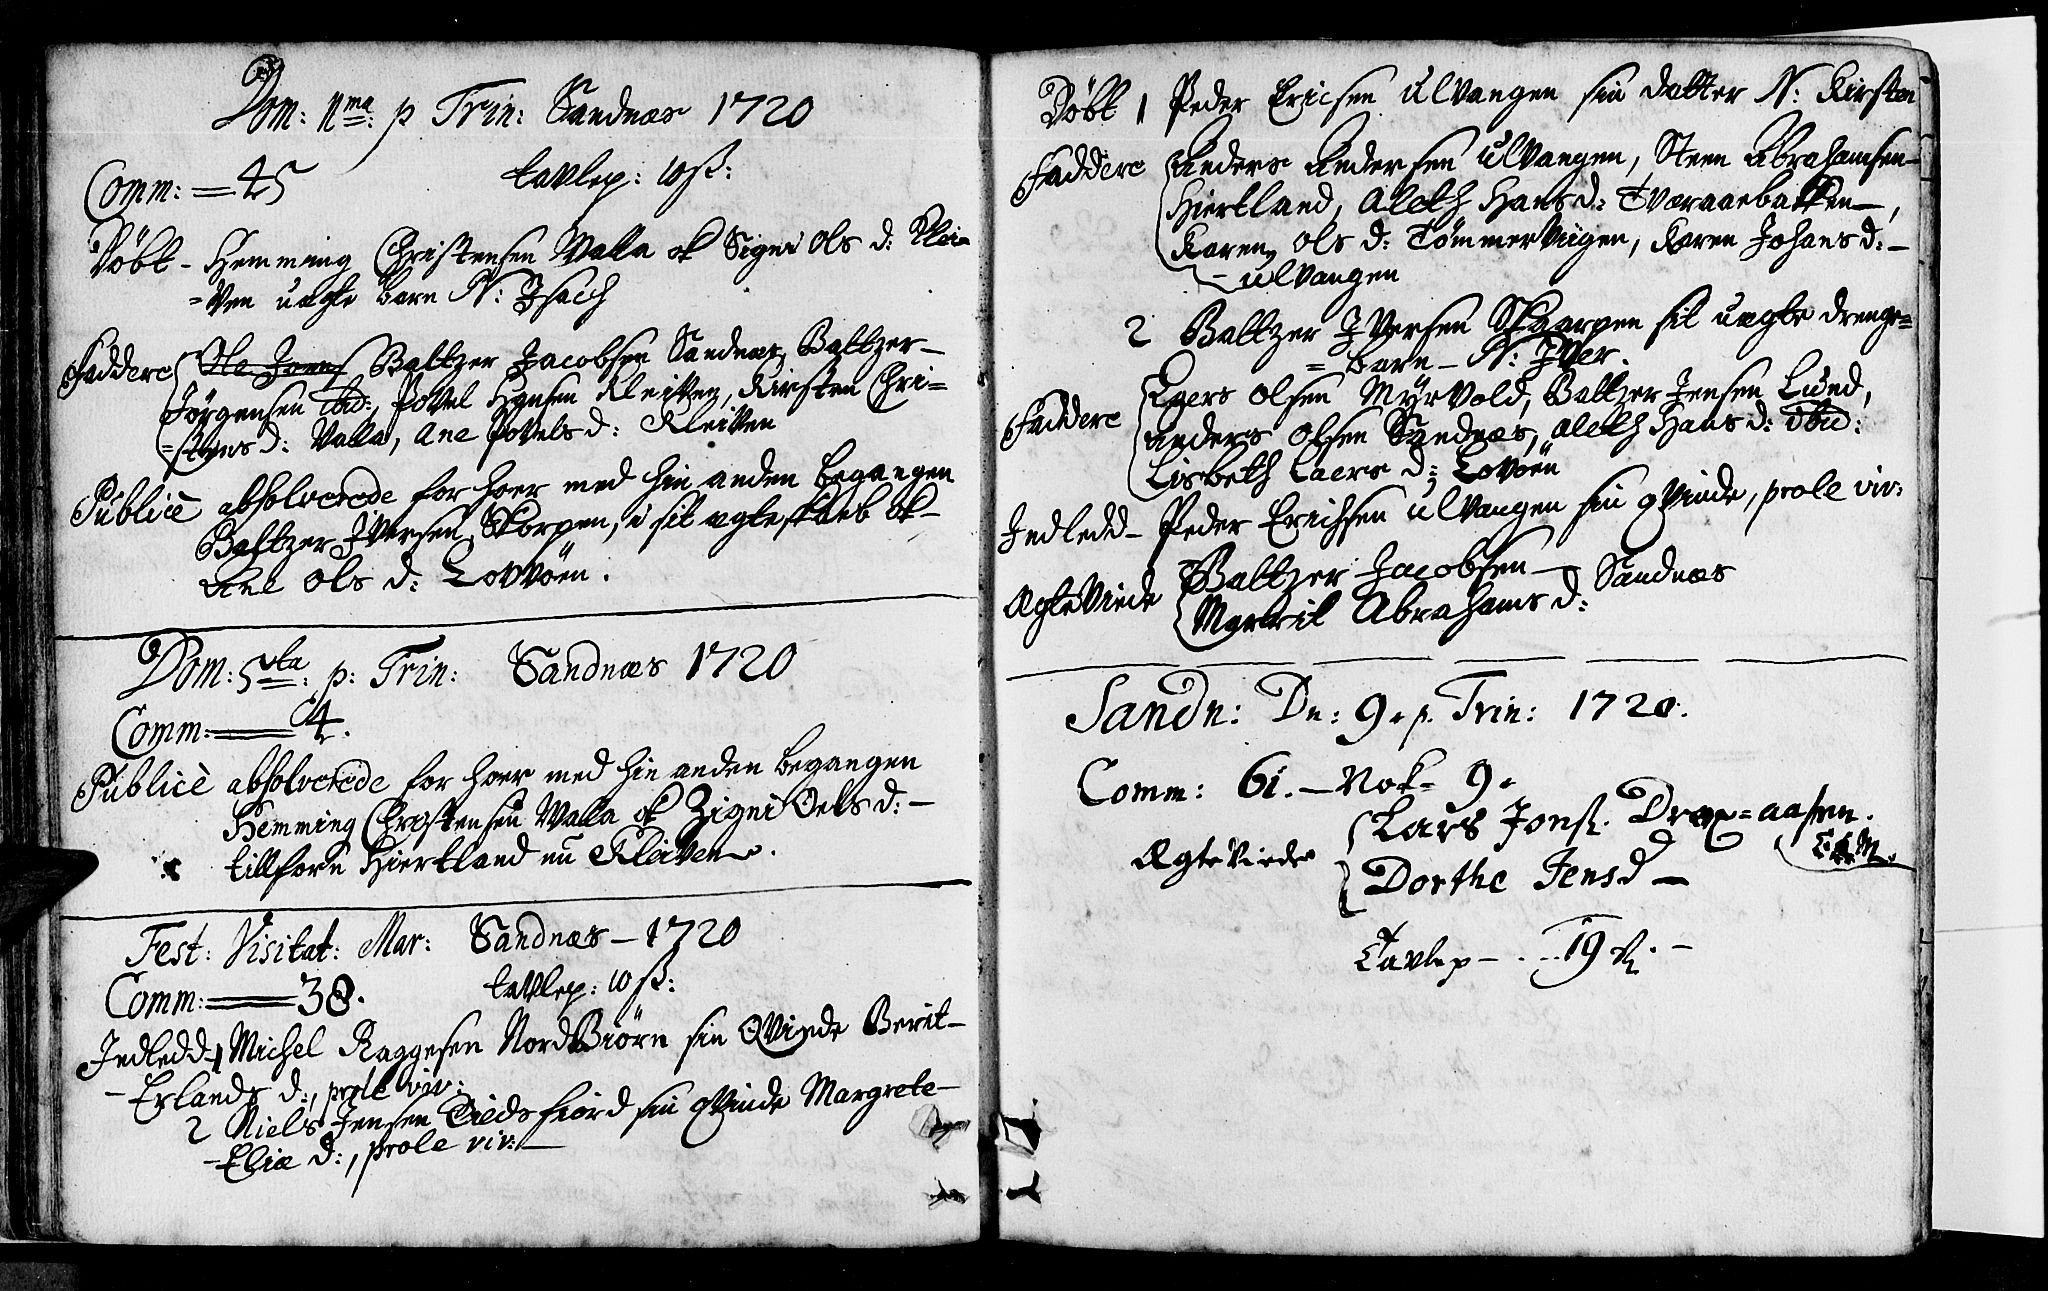 Dom: 1ma: p Trin: Sandnæs 1720
Comm: = 45 tavlep: 10 ß:
Döbt - Hemming Christensen Walla ok Signi Ols d: Klei=
=ven uægte barn N: Isach
Faddere Ole Joens Baltzer Jacobsen Sandnæs, Baltzer
Jörgensen ibid:, Povel Hansen Kleitten, Kirsten Chri=
=stens d: Valla, Ane Povels d: Kleitven
Publicè absolverede for hoer med hin anden begangen
Baltzer Iversen Skorpen, i sit ægteskaeb ok
Ane Ols d: Lovvöen.
Dom: 5ta: p: Trin: Sandnæs 1720
Comm: = 4.
Publicè absolverede for hoer med hin anden begangen
Hemming Christensen Walla ok Zigni Oels d: -
tillforn Hiertland nu Kleiven.
Fest: Visitat: Mar: Sandnæs - 1720
Comm: = 38. tavlep: 10 ß:
Indledd - 1 Michel Raggesen NordBiörn sin Qvinde Berit -
- Erlands d:, prole viv:
2 Niels Jensen Tiedsfiord sin qvinde Margrete -
- Eliæ d:, prole viv: -
Döbt 1 Peder Ericsen Ulvangen sin datter N: Kirsten
Faddere Anders Andersen Ulvangen, Steen Abrahamsen -
Hiertland, Aleth Hans d: Tværaaebakken -,
Karen Ols d: Tömmerviigen, Karen Johans d: -
- Ulvangen
2 Baltzer Iversen Skaarpen sit uægte drenge=
= barn - N: Iver.
Faddere Laers Olsen Myrvold, Baltzer Jensen Lund,
Anders Olsen Sandnæs, Aleth Hans d: ibid:
Lisbeth Laers d: Lovöen
Indledd - Peder Erichsen Ulvangen sin qvinde, prole viv:
Ægteviede Baltzer Jacobsen - Sandnæs
Margrit Abrahams d:
Sandn: Dn: 9. p. Trin: 1720.
Comm: 61. - Nok = 9.
Ægteviede Lars Jons: = aasen.
Dorthe Jensd -
Tavlep - . .. 19 ß. -